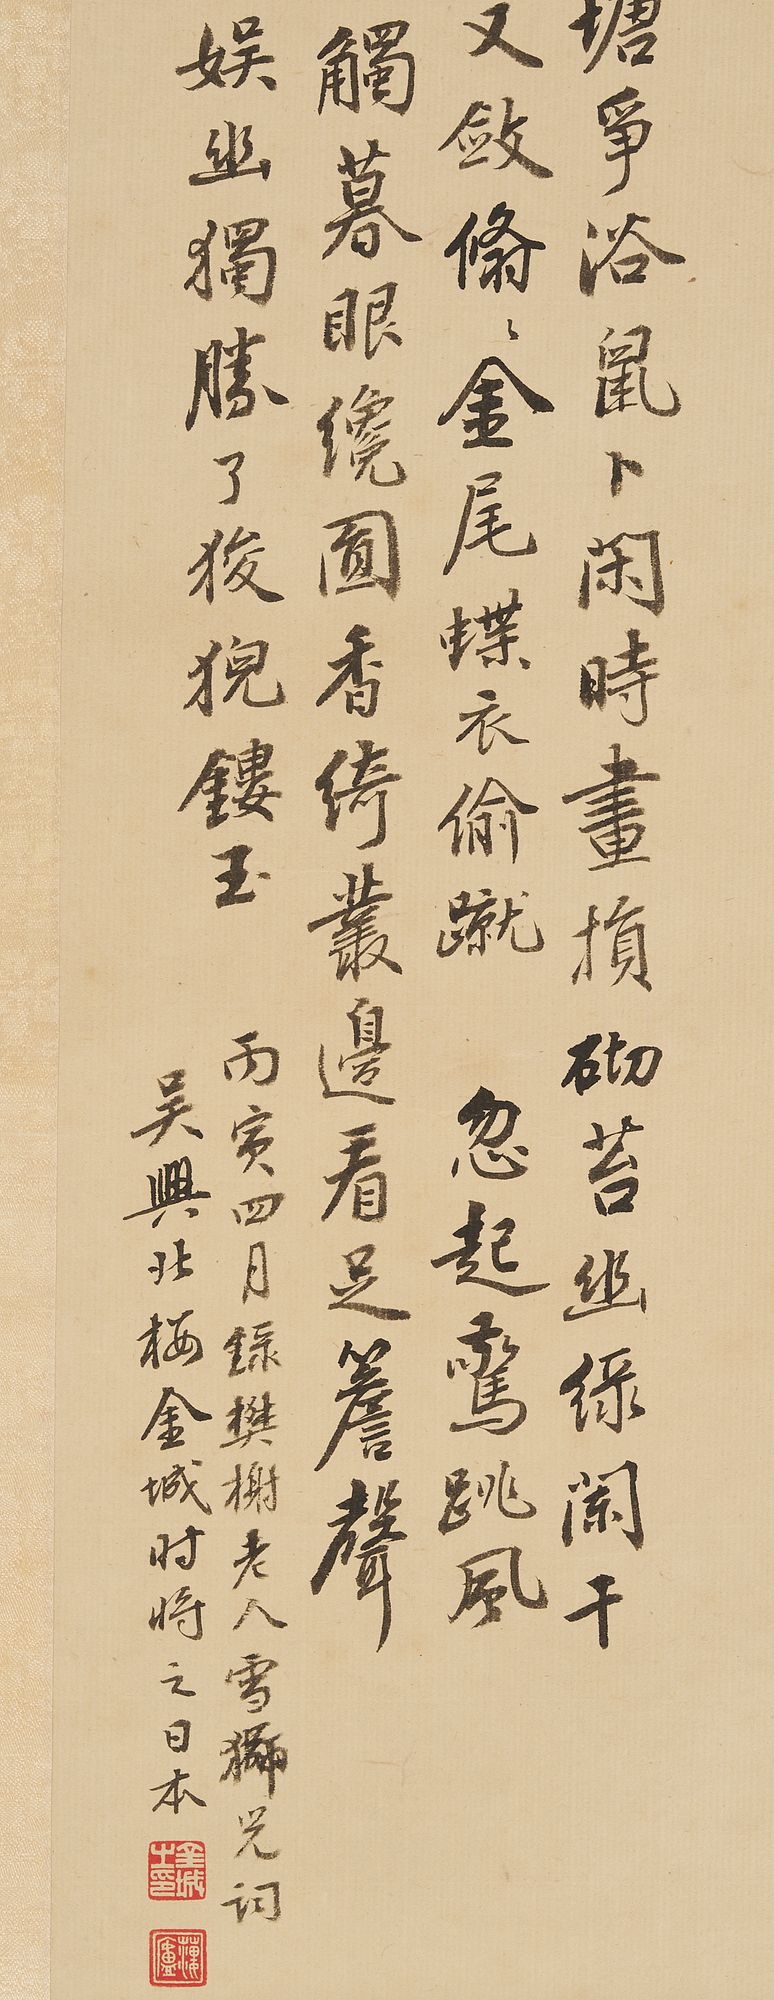 塘爭浴鼠卜閑時畫損砌苔幽綠闌干
又斂翛〻金尾蝶衣偷蹴忽起驚跳風
觸暮眼纔圓香綺叢邊看足簷聲
娛幽獨勝了狻猊鏤玉
丙寅四月錄樊榭老人雪獅兒詞
吳興北樓金城時將之日本
金城之印